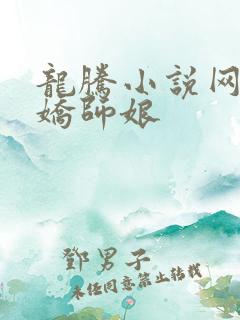 龍騰小说网
嬌師娘
鄧男子
未任同意禁止转载